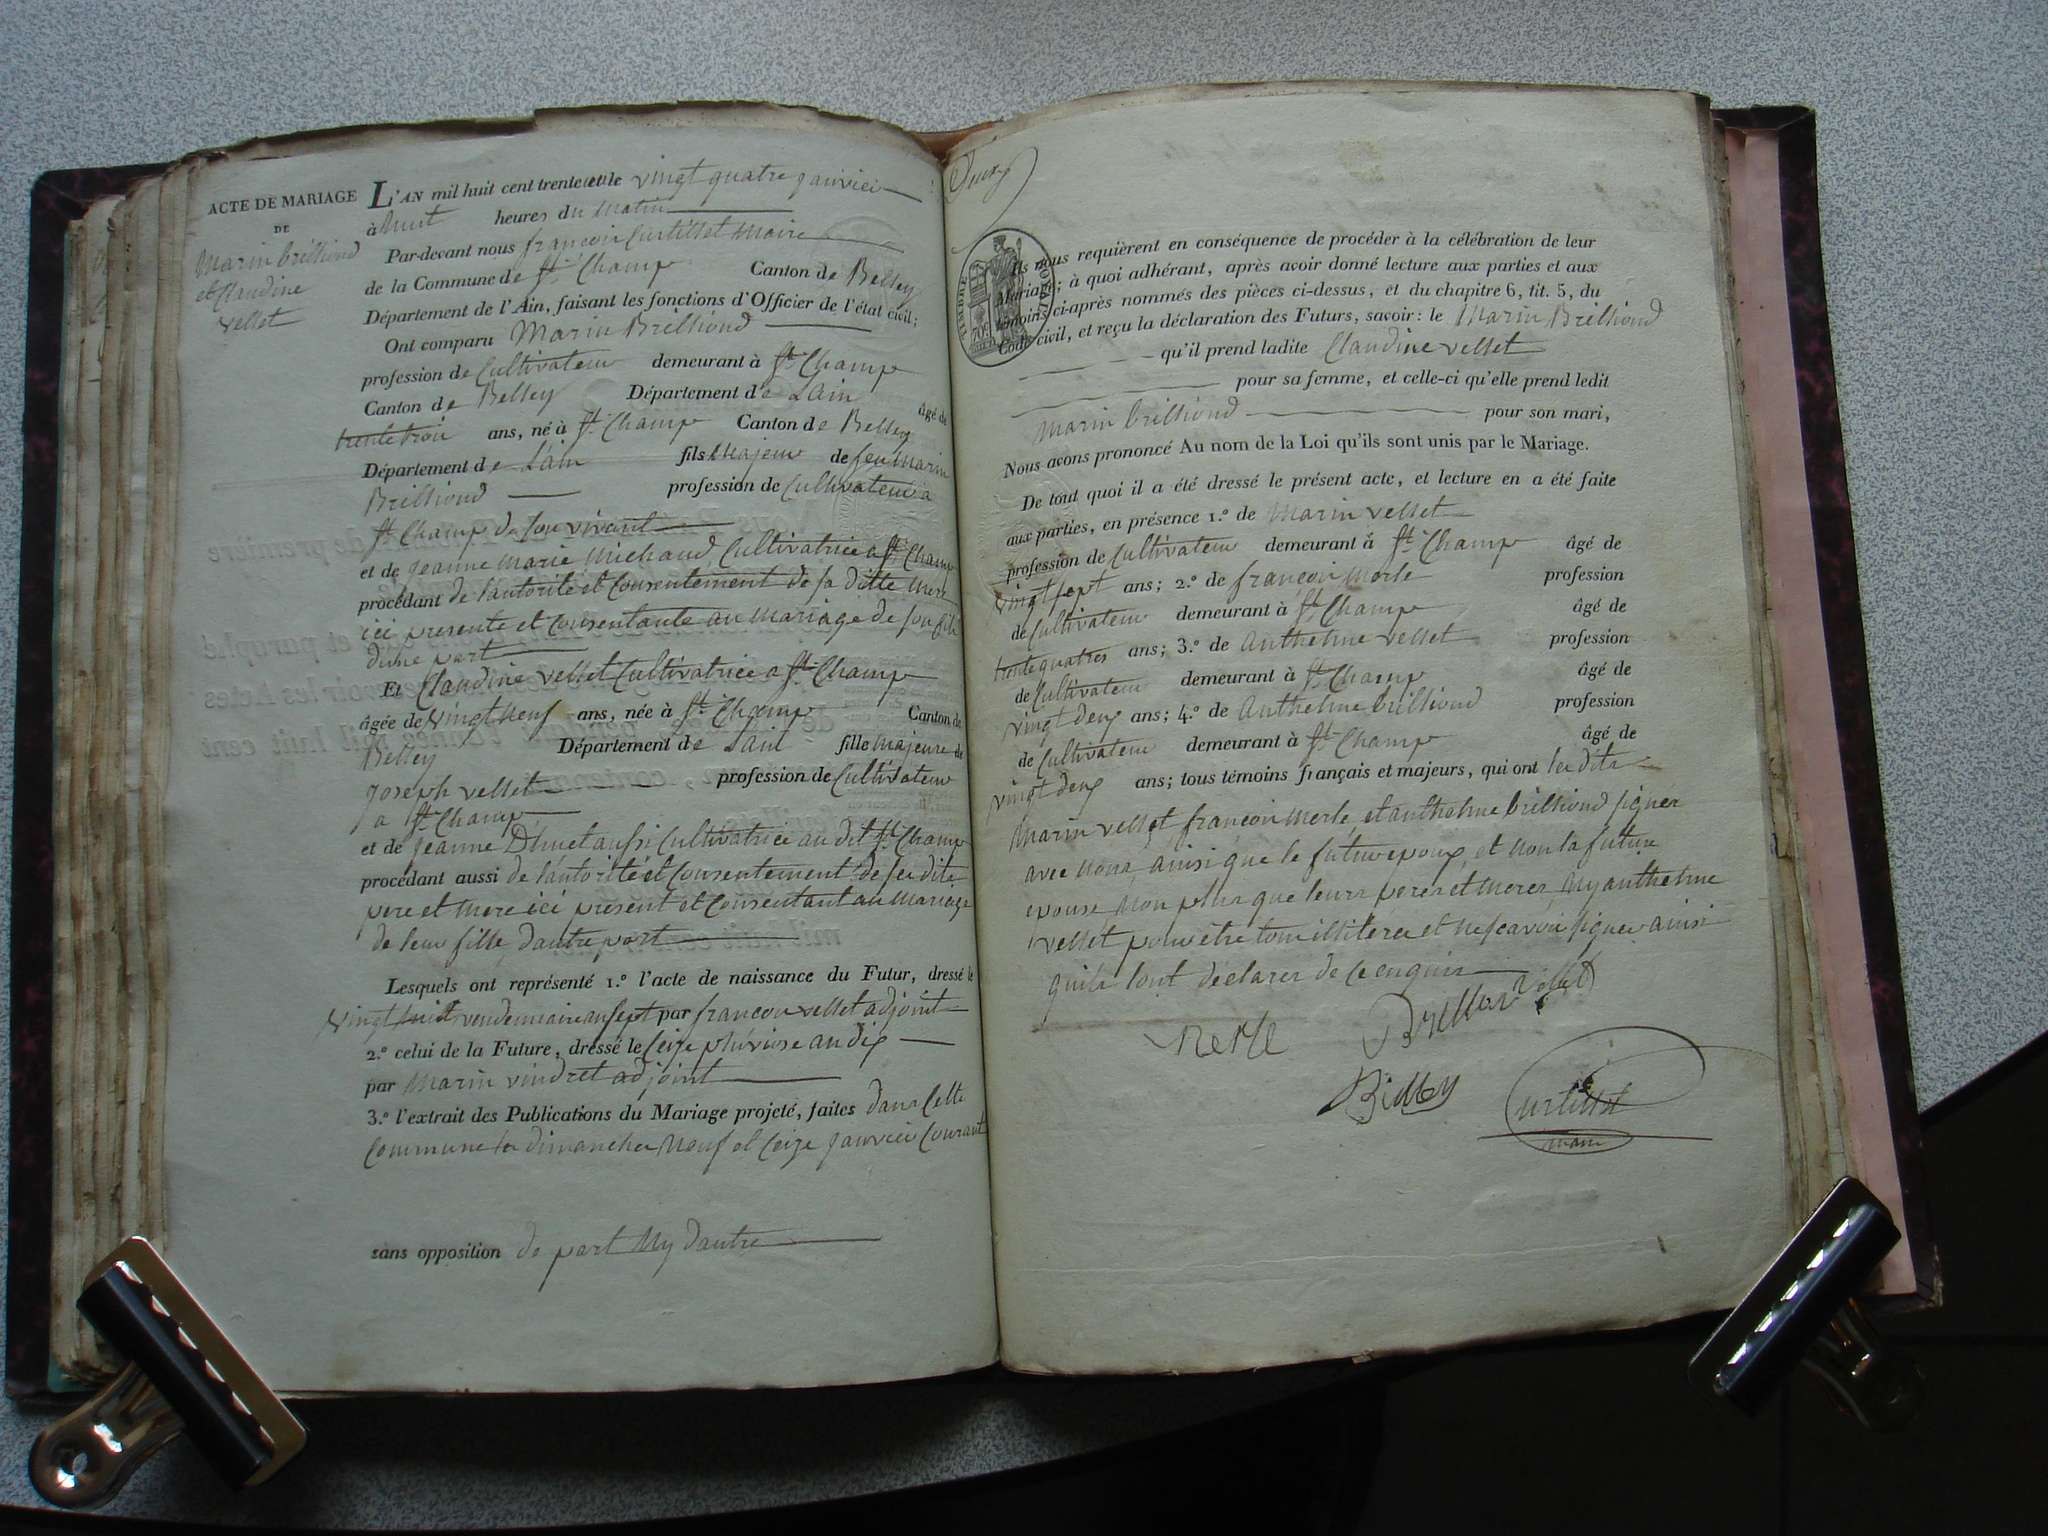 ACTE DE MARIAGE
DE
Marin brilliond
et Claudine
vellet
L'AN mil huit cent trente et un le vingt quatre janvier
à huit heures du Matin
Par-devant nous françois Curtillet Maire
de la Commune de St. Champ Canton de Belley
Département de l'Ain, faisant les fonctions d'Officier de l'état civil;
Ont comparu Marin Brilliond
profession de Cultivateur demeurant à St. Champ
Canton de Belley Département de Lain âgé de
trente trois ans, né à St. Champ Canton de Belley
Département de Lain fils Majeur de feu Marin
Brilliond profession de Cultivateur a
St. Champ de son vivant
et de jeanne Marie Michaud Cultivatrice a St. Champ
procédant de lautorité et Consentement de sa ditte Mere
ici presente et Consentante au Mariage de son fils
dune part
Et Claudine vellet Cultivatrice a St. Champ
âgée de vingt neuf ans, née à St. Champ Canton de
Belley Département de Lain fille Majeure de
joseph vellet profession de Cultivateur
a St. Champ
et de jeanne aussi Cultivatrice au dit St. Champ
procédant aussi de lautorité et Consentement de ses dits
pere et Mere ici présent et Consentant au Mariage
de leur fille dautre part
Lesquels ont représenté 1.º l'acte de naissance du Futur, dressé le
vingt huit vendemiaire an sept par francois vellet adjoint
2.º celui de la Future, dressé le Ceize pluviose an dix
par Marin vindret adjoint
3.º l'extrait des Publications du Mariage projeté, faites dans Cette
Commune les dimanches Neuf et Ceize janvier Courant
sans opposition de part Ny dautre
TIMBRE ROYAL
70c
Ils nous requièrent en conséquence de procéder à la célébration de leur
Mariage; à quoi adhérant, après avoir donné lecture aux parties et aux
témoins ci-après nommés des pièces ci-dessus, et du chapitre 6, tit. 5, du
Code civil, et reçu la déclaration des Futurs, savoir: le Marin Brilliond
qu'il prend ladite Claudine vellet
pour sa femme, et celle-ci qu'elle prend ledit
Marin brilliond pour son mari,
Nous avons prononcé Au nom de la Loi qu'ils sont unis par le Mariage.
De tout quoi il a été dressé le présent acte, et lecture en a été faite
aux parties, en présence 1.º de Marin vellet
profession de Cultivateur demeurant à St. Champ âgé de
vingt sept ans; 2.º de françois Merle profession
de Cultivateur demeurant à St. Champ âgé de
trente quatres ans; 3.º de Anthelme vellet profession
de Cultivateur demeurant à St. Champ âgé de
vingt deux ans; 4.º de Anthelme brilliond profession
de Cultivateur demeurant à St. Champ âgé de
vingt deux ans; tous témoins français et majeurs, qui ont les dits
Marin vellet françois Merle et anthelme brilliond signer
avec Nous, ainsi que le futur epoux, et Non la future
epouse Non plus que leurs peres et Meres Ny anthelme
vellet pour être tous illitérés et Ne scavoir signer ainsi
quils lont declarer de Ce enquis
Merle Brillion vellet
Curtillet
maire